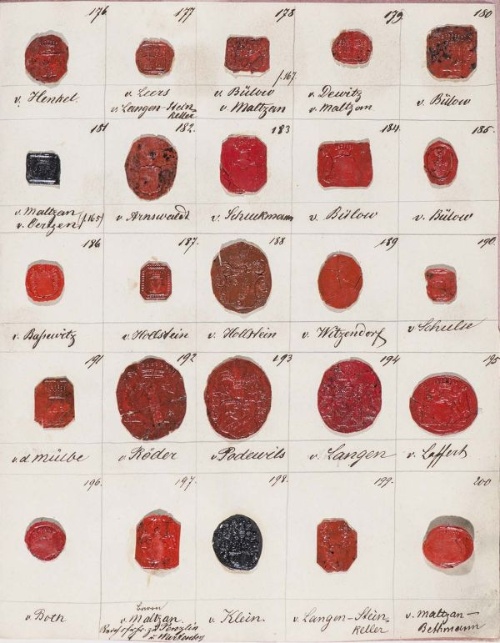 176 177 178 179 180
v. Henkel.
v. Lers
v. Langen-Stein
Keller
v. Bülow f.167
v. Maltzan
v. Dewitz
v. Maltzan
v. Bülow
181 182. 183 184. 185.
v. Maltzan
v. Oertzen
v. Arnswaldt
v. Schuckmann
v. Bülow
v. Bülow
186 187. 188 189 190
v. Baßewitz
v. Hollstein
v. Hollstein
v. Witzendorf
v. Schulse
191 192 193 194 195
v. d. Mülbe
v. Röder
v. Podewils
v. Langen
v. Laffert
196. 197. 198. 199. 200
v. Both
v. Maltzan
v. Klein.
v. Langen-Stein-
Keller
v. Maltzan-
Bethmann